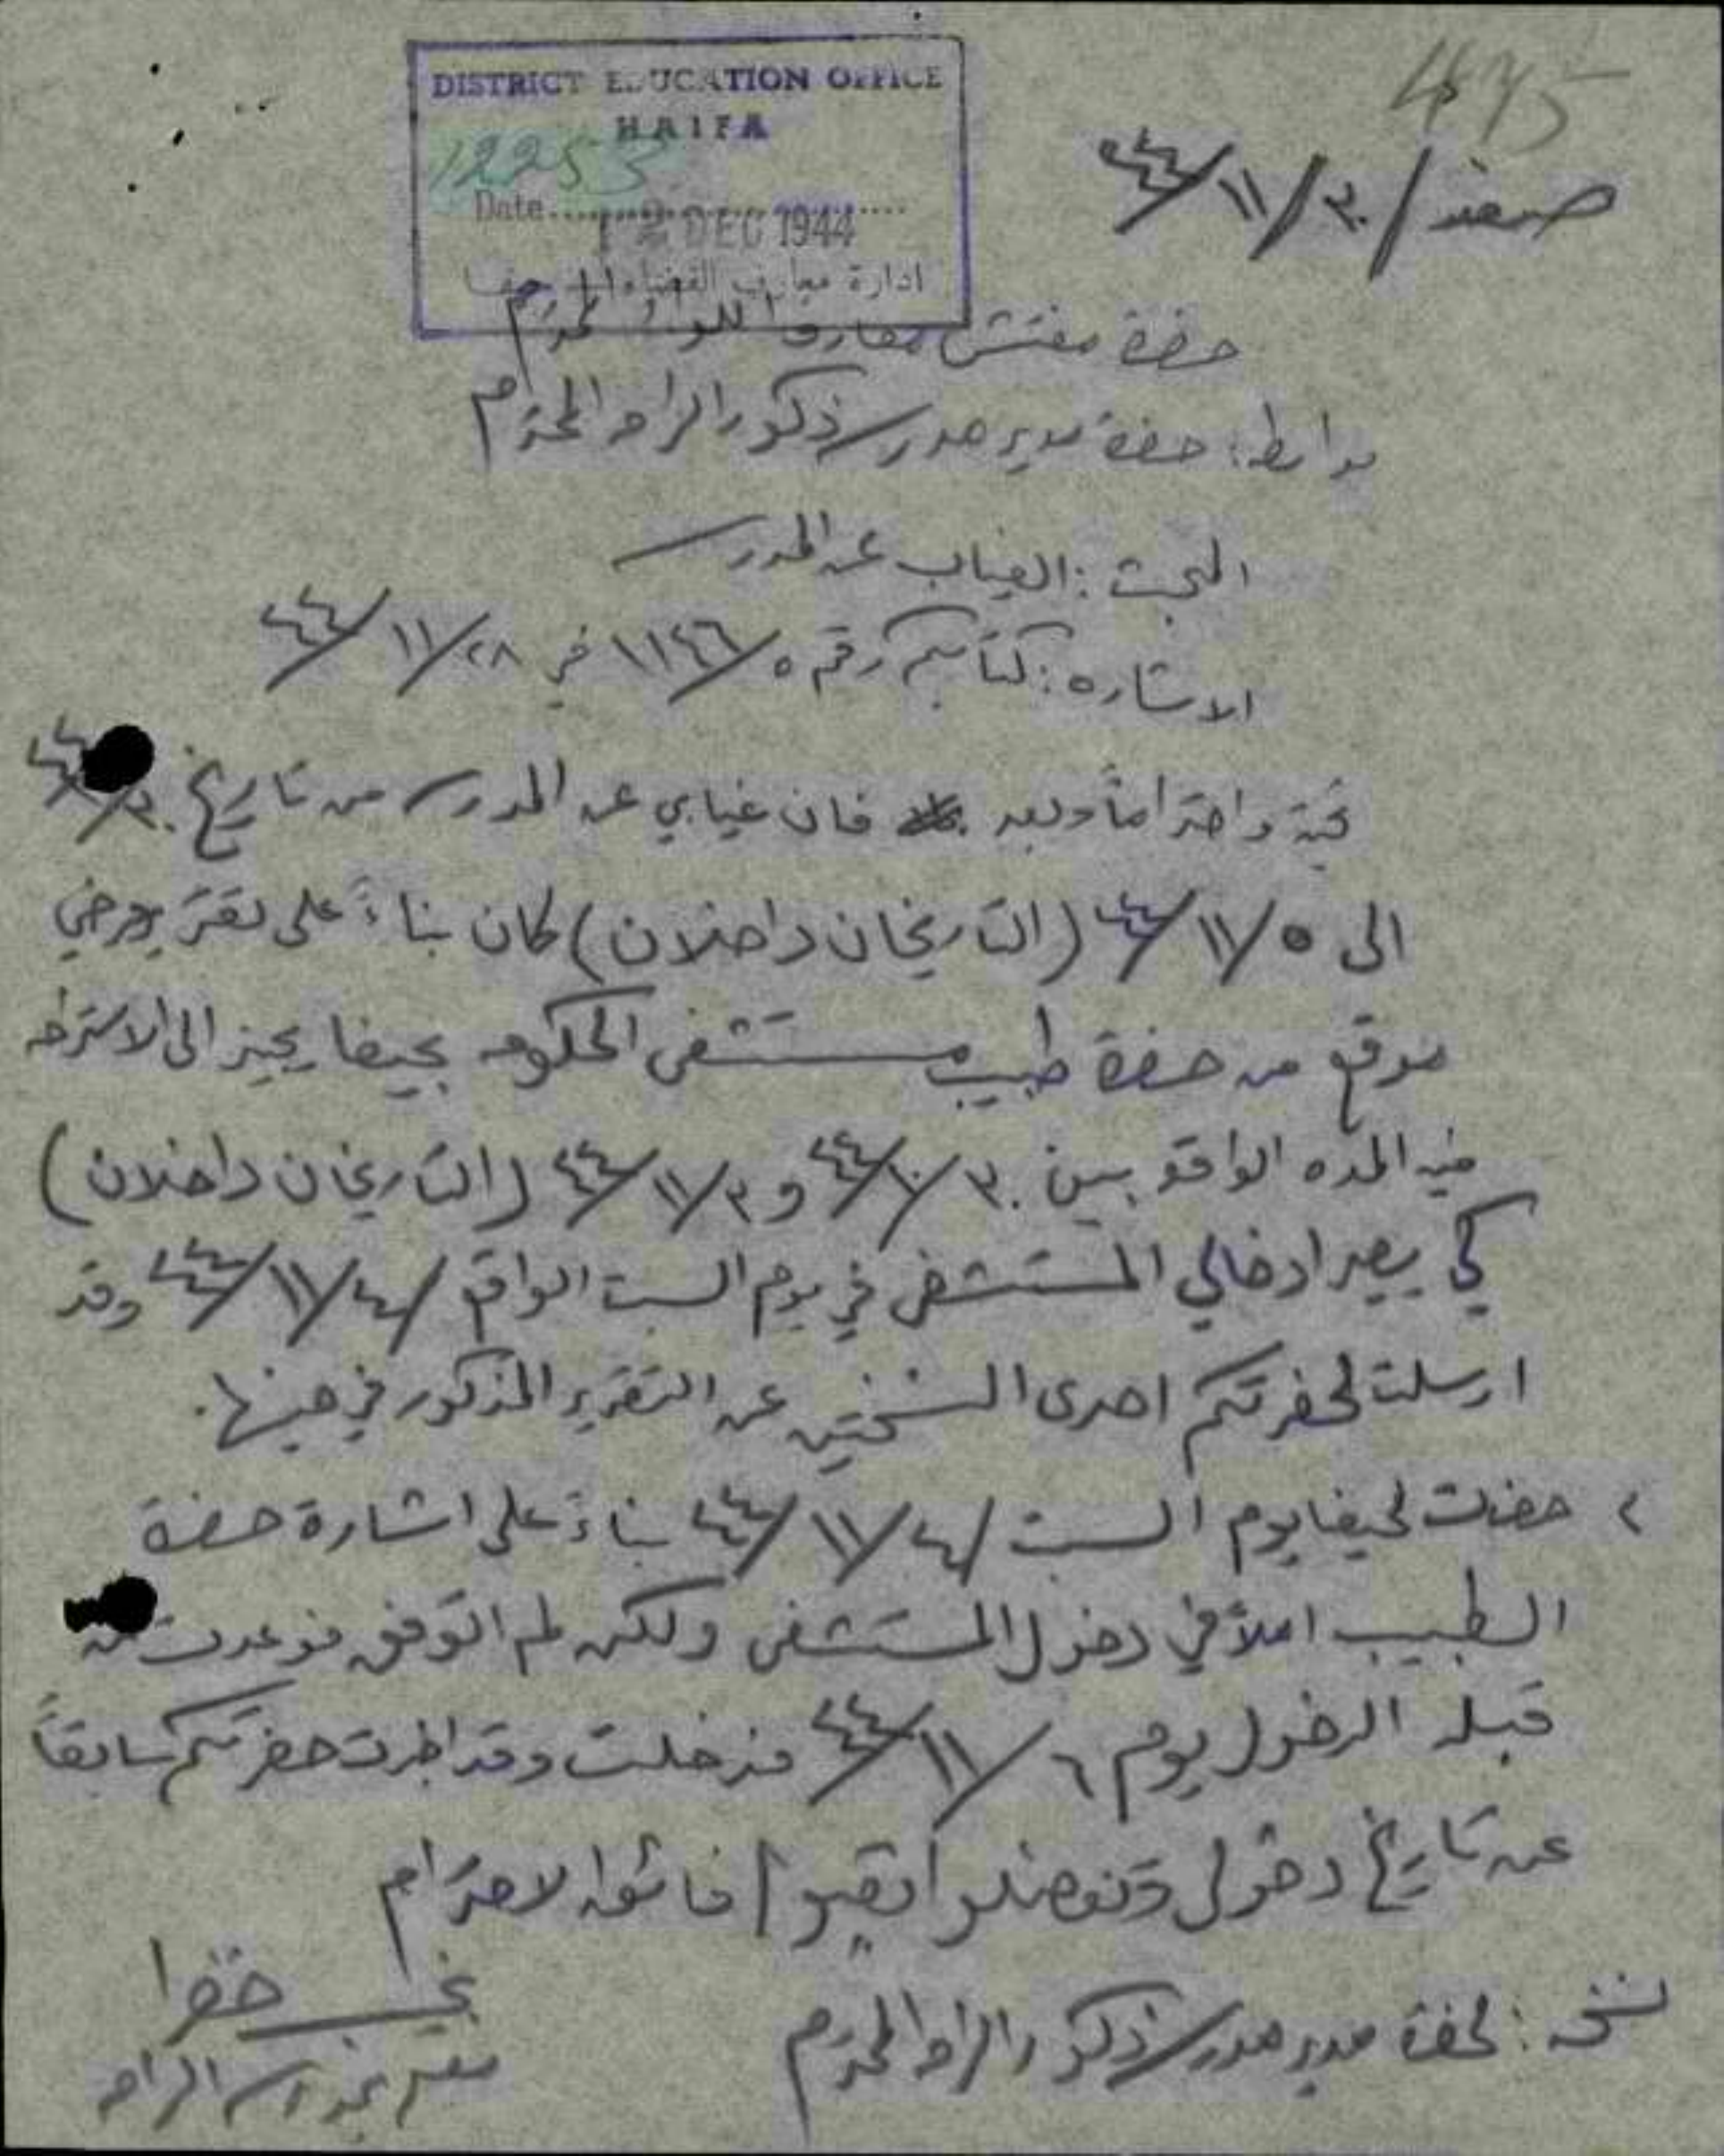 475
DISTRICT EDUCATION OFFICE
HAIFA
12253
Date
12 DEC 1944
ادارة معارف القضاء حيفا
صفد / ٣٠ / ١١ / ٤٤
حضرة مفتش معارف اللواء المحترم
بواسطة: حضرة مدير مدرسة ذكور الرامه المحترم
المبحث: الغياب عن المدرسه
الاشاره: كتابكم رقم ٥/ ١١٤٦ في ٢٨/ ١١/ ٤٤
تحية واحتراماً وبعد فان غيابي عن المدرسه من تاريخ ٣٠/
الى ٥/ ١١/ ٤٤ (التاريخان داخلان) كان بناءً على تقرير مرضي
موقع من حضرة طبيب مستشفى الحكومه بحيفا يجيز الى الاستراحه
فيه المده الواقعه بين ٣٠/ ١٠/ ٤٤ و ٣/ ١١/ ٤٤ (التاريخان داخلان)
كي يصير ادخالي المستشفى في يوم السبت الواقع / ٤/ ١١/ ٤٤ وقد
ارسلت لحضرتكم احدى النسختين عن التقرير المذكور في حينها.
٢ حضرت لحيفا يوم السبت / ٤/ ١١/ ٤٤ بناءً على اشارة حضرة
الطبيب املاً في دخول المستشفى ولكن لم اتوفق فوعدت من
قبله الدخول يوم ٦/ ١١/ ٤٤ فدخلت وقد اخبرت حضرتكم سابقاً
عن تاريخ دخولي وتفضلوا بقبول فائق الاحترام
خضرا
معلم بمدرسة الرامه
نسخه: لحضرة مدير مدرسة ذكور الرامه المحترم